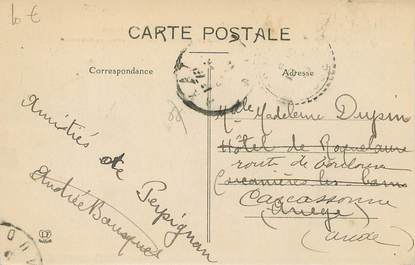 10 €
CARTE POSTALE
Correspondance
Adresse
Amitiés de Perpignan
Andrée Bousquet
Mlle Madeleine Dupin
Hôtel de Roquelaure
route de Toulouse
Carcanières les bains
Carcassonne
(Ariège)
(Aude)
LF